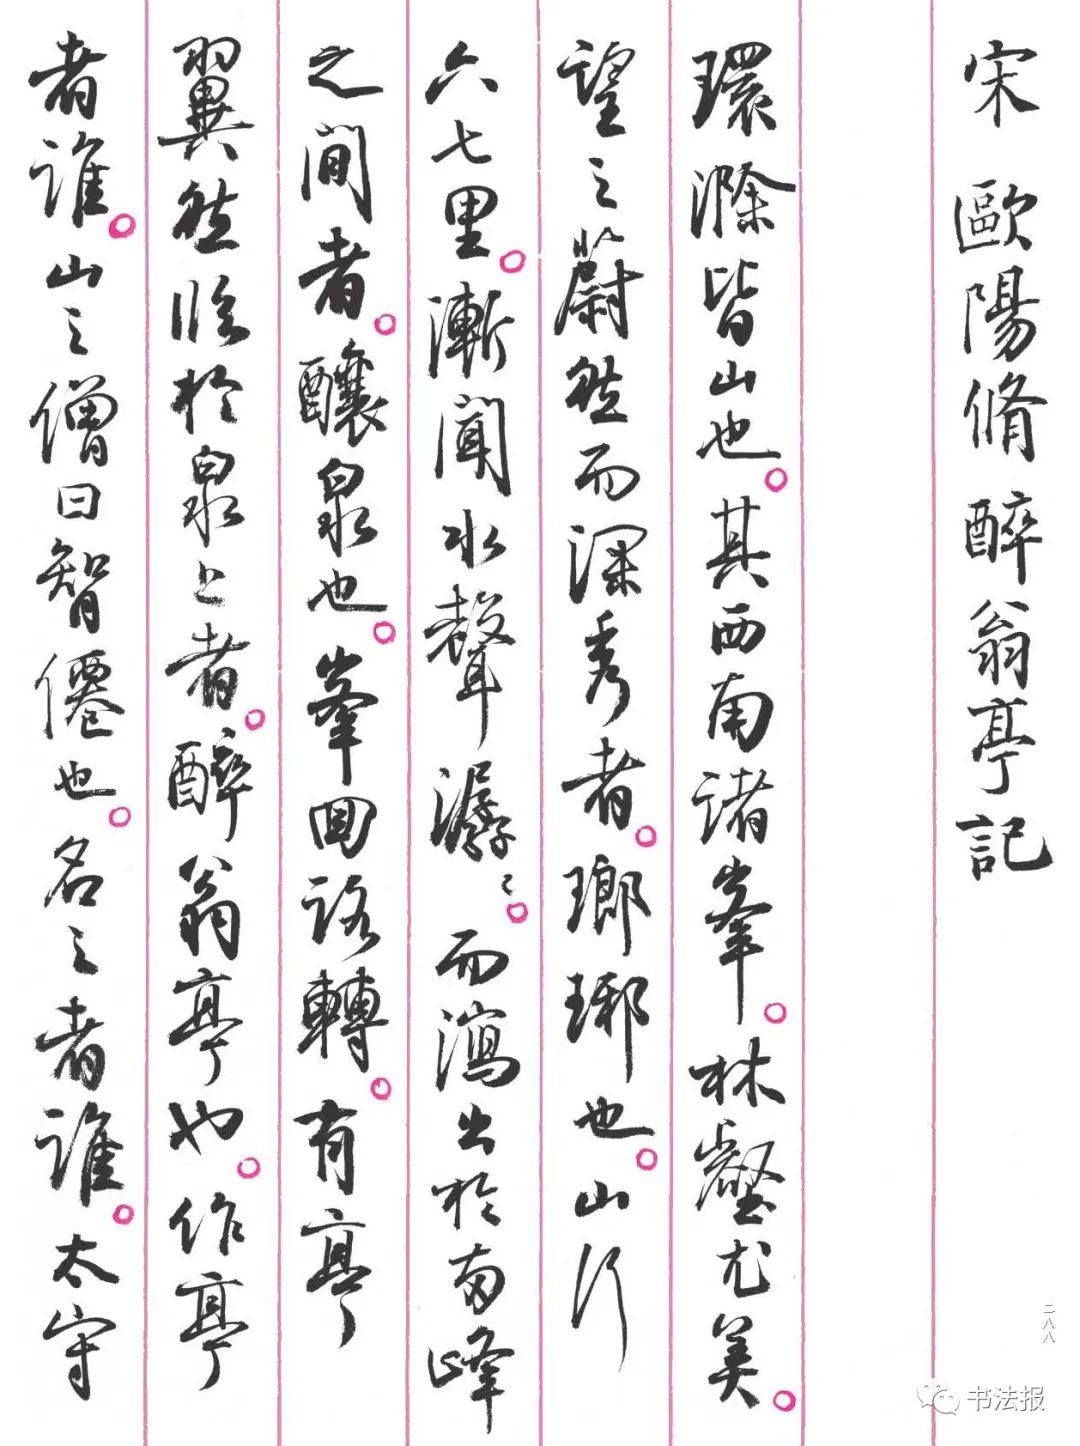 宋 歐陽脩 醉翁亭記
環滁皆山也。其西南諸峯。林壑尤美。
望之蔚然而深秀者。瑯琊也。山行
六七里。漸聞水聲潺々。而瀉出於兩峰
之間者。釀泉也。峯回路轉。有亭
翼然臨於泉上者。醉翁亭也。作亭
者誰。山之僧曰智僊也。名之者誰。太守
二八八
书法报